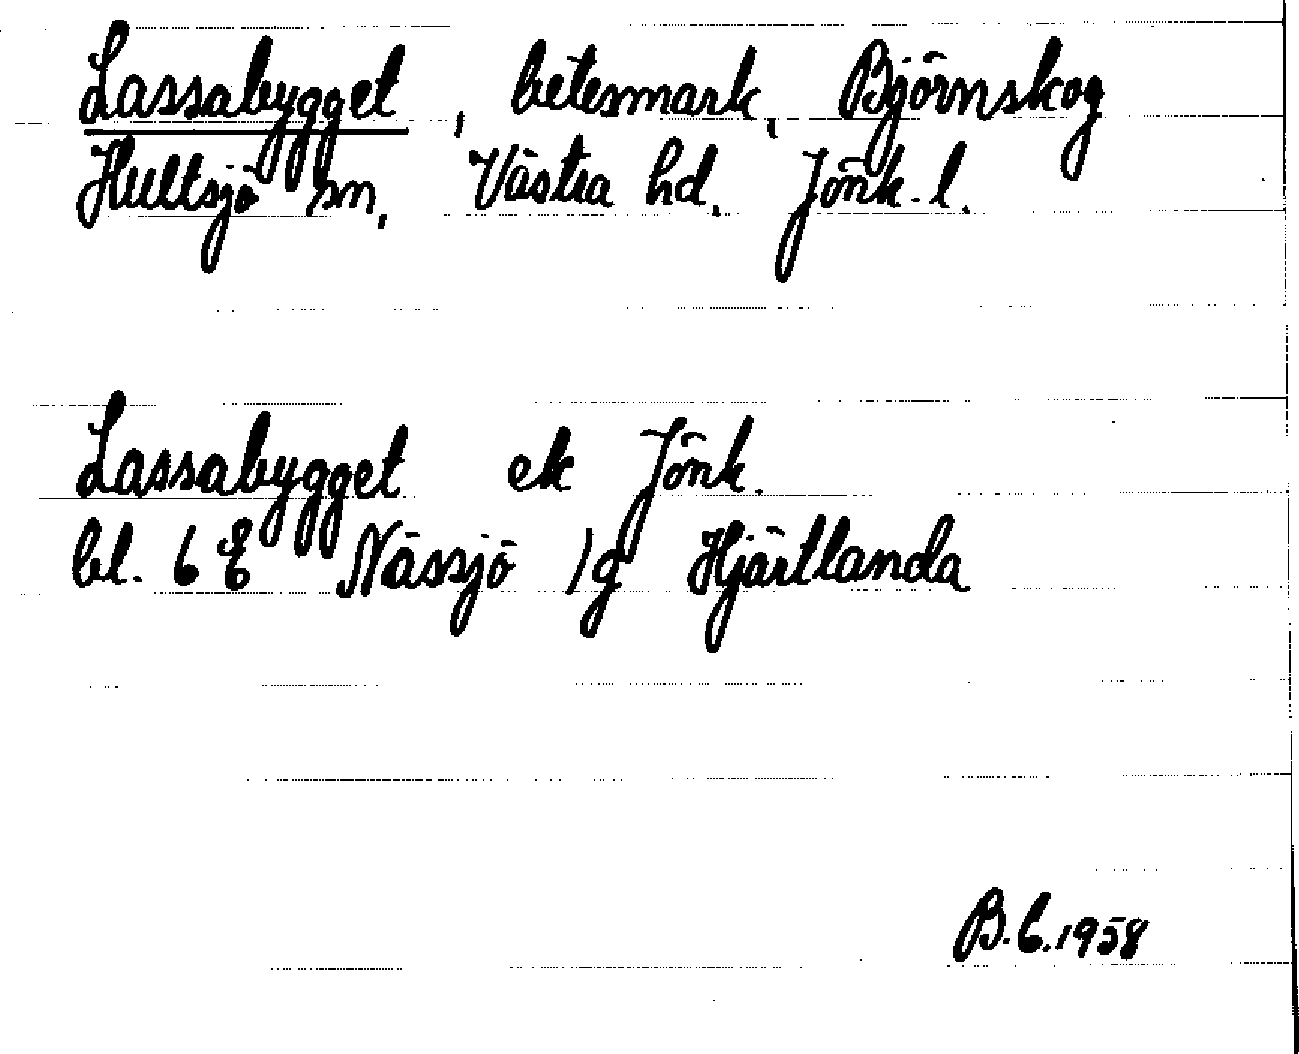 Lassabygget, betesmark, Björnskog
Hultsjö sn, Västra hd. Jönk. l.
Lassabygget ek Jönk.
bl. 6 E Nässjö 1g Hjärtlanda
B.C.1958